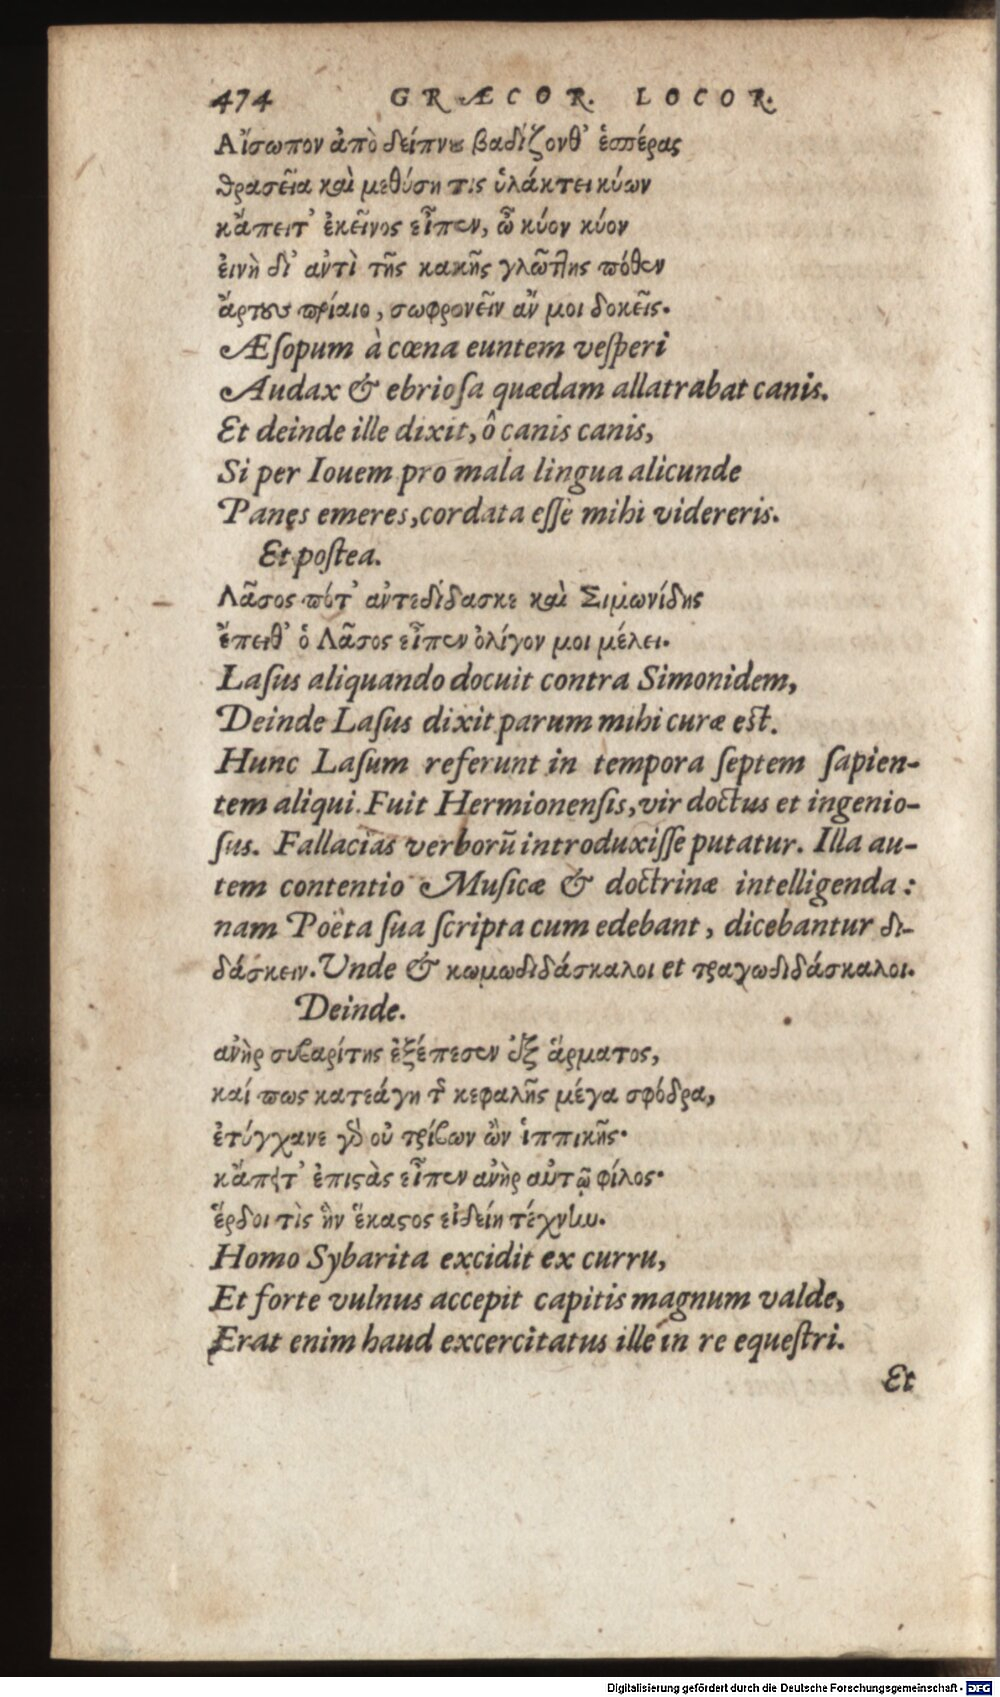 474 GRÆCOR. LOCOR.
Αἴσωπον ἀπὸ δείπνου βαδίζονθ᾽ ἑσπέρας
θρασεῖα καὶ μεθύση τις ὑλάκτει κύων
κἄπειτ᾽ ἐκεῖνος εἶπεν, ὦ κύον κύον
ἐινὴ δί᾽ αὐτὶ τῆς κακῆς γλώττης πόθεν
ἄρτους πρίαιο, σωφρονεῖν ἄν μοι δοκεῖς.
Æſopum à cœna euntem veſperi
Audax & ebrioſa quædam allatrabat canis.
Et deinde ille dixit, ô canis canis,
Si per Iouem pro mala lingua alicunde
Panes emeres, cordata eſſe mihi videreris.
Et poſtea.
Λᾶσος πότ᾽ αὐτεδίδασκε καὶ Σιμωνίδης
ἔπειθ᾽ ὁ Λᾶσος εἶπεν ὀλίγον μοι μέλει.
Laſus aliquando docuit contra Simonidem,
Deinde Laſus dixit parum mihi curæ eſt.
Hunc Laſum referunt in tempora ſeptem ſapien-
tem aliqui. Fuit Hermionenſis, vir doctus et ingenio-
ſus. Fallacias verborũ introduxiſſe putatur. Illa au-
tem contentio Muſicæ & doctrinæ intelligenda:
nam Poëta ſua ſcripta cum edebant, dicebantur δι-
δάσκειν. Unde & κωμωδιδάσκαλοι et τραγωδιδάσκαλοι.
Deinde.
ἀνὴρ συβαρίτης ἐξέπεσεν ἐξ ἅρματος,
καί πως κατεάγη τῆς κεφαλῆς μέγα σφόδρα,
ἐτύγχανε γὰρ οὐ τρίβων ὢν ἱππικῆς·
κἄπειτ᾽ ἐπιστὰς εἶπεν ἀνὴρ αὐτῷ φίλος·
ἕρδοι τὶς ἣν ἕκαστος εἰδείη τέχνην.
Homo Sybarita excidit ex curru,
Et forte vulnus accepit capitis magnum valde,
Erat enim haud excercitatus ille in re equeſtri.
Et
Digitalisierung gefördert durch die Deutsche Forschungsgemeinschaft - DFG